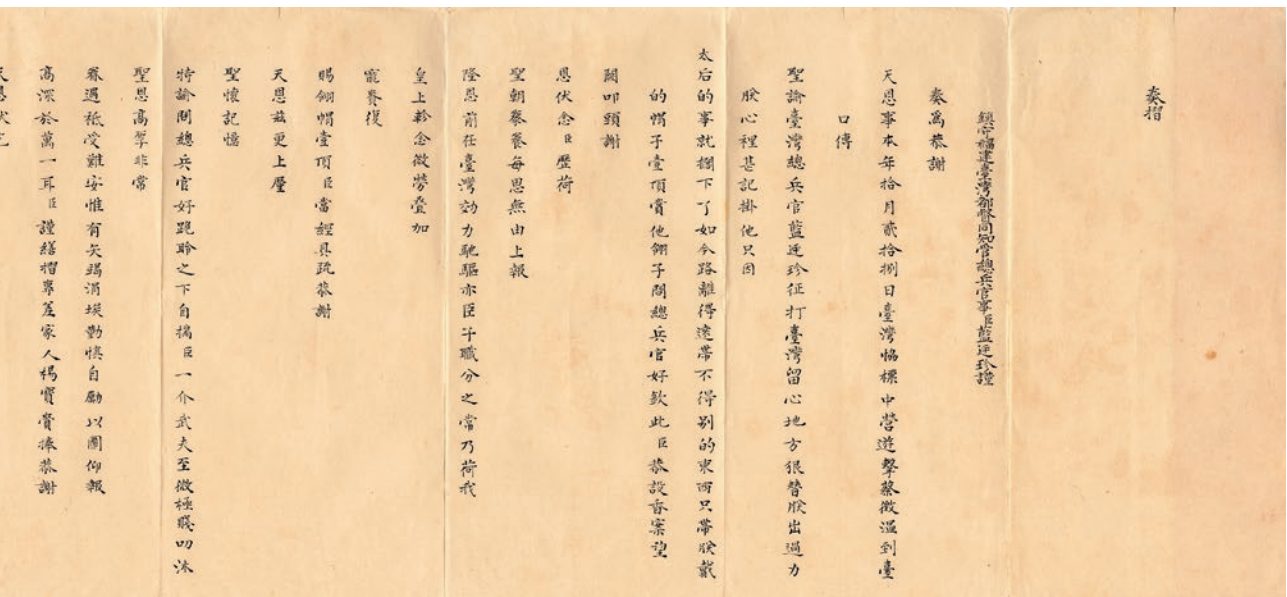 奏摺
鎮守福建臺灣都督同知管總兵官事臣藍廷珍謹
奏為恭謝
天恩事本年拾月貳拾捌日臺灣協標中營遊擊蔡徵溫到臺
口傳
聖諭臺灣總兵官藍廷珍征打臺灣留心地方狠替朕出過力
朕心裡甚記掛他只因
太后的事就擱下了如今路離得遠帶不得別的東西只帶朕戴
的帽子壹頂賞他翎子問總兵官好欽此臣恭設香案望
闕叩頭謝
恩伏念臣歷荷
聖朝豢養每思無由上報
隆恩前任臺灣効力馳驅亦臣子職分之常乃荷我
皇上軫念微勞疊加
寵賚復
賜翎帽壹頂臣當經具疏恭謝
天恩茲更上厪
聖懷記憶
特諭問總兵官好跪聆之下自揣臣一介武夫至微極賤叨沐
聖恩高厚非常
眷遇祗受難安惟有矢竭涓埃勤慎自勵以圖仰報
高深於萬一耳臣謹繕摺專差家人楊寶賫捧恭謝
天恩伏乞